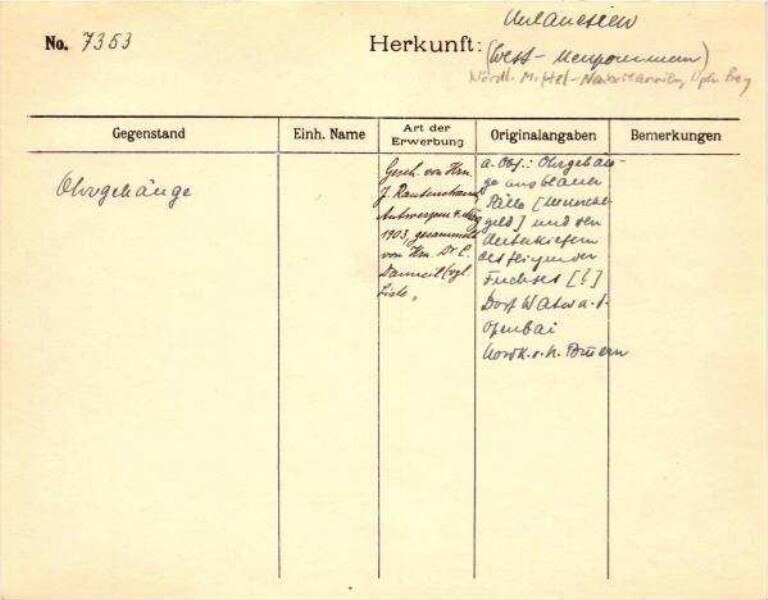 No. 7353
Herkunft: Melanesien
(West-Neupommern)
Nördl. Mittel-Neubritannien, Open Bay
Gegenstand
Einh. Name
Art der Erwerbung
Originalangaben
Bemerkungen
Ohrgehänge
Gesch. von Hrn.
J. Rautenstrauch,
Antwerpen
1903, gesammelt
von Hrn. Dr C.
Danneil (vgl.
Liste.
a. Obj.: Ohrgehän-
ge aus blauen
[Muschel-
geld] und den
Unterkiefern
des fliegenden
Fuchses [!]
Dorf Watu a. d.
Openbai